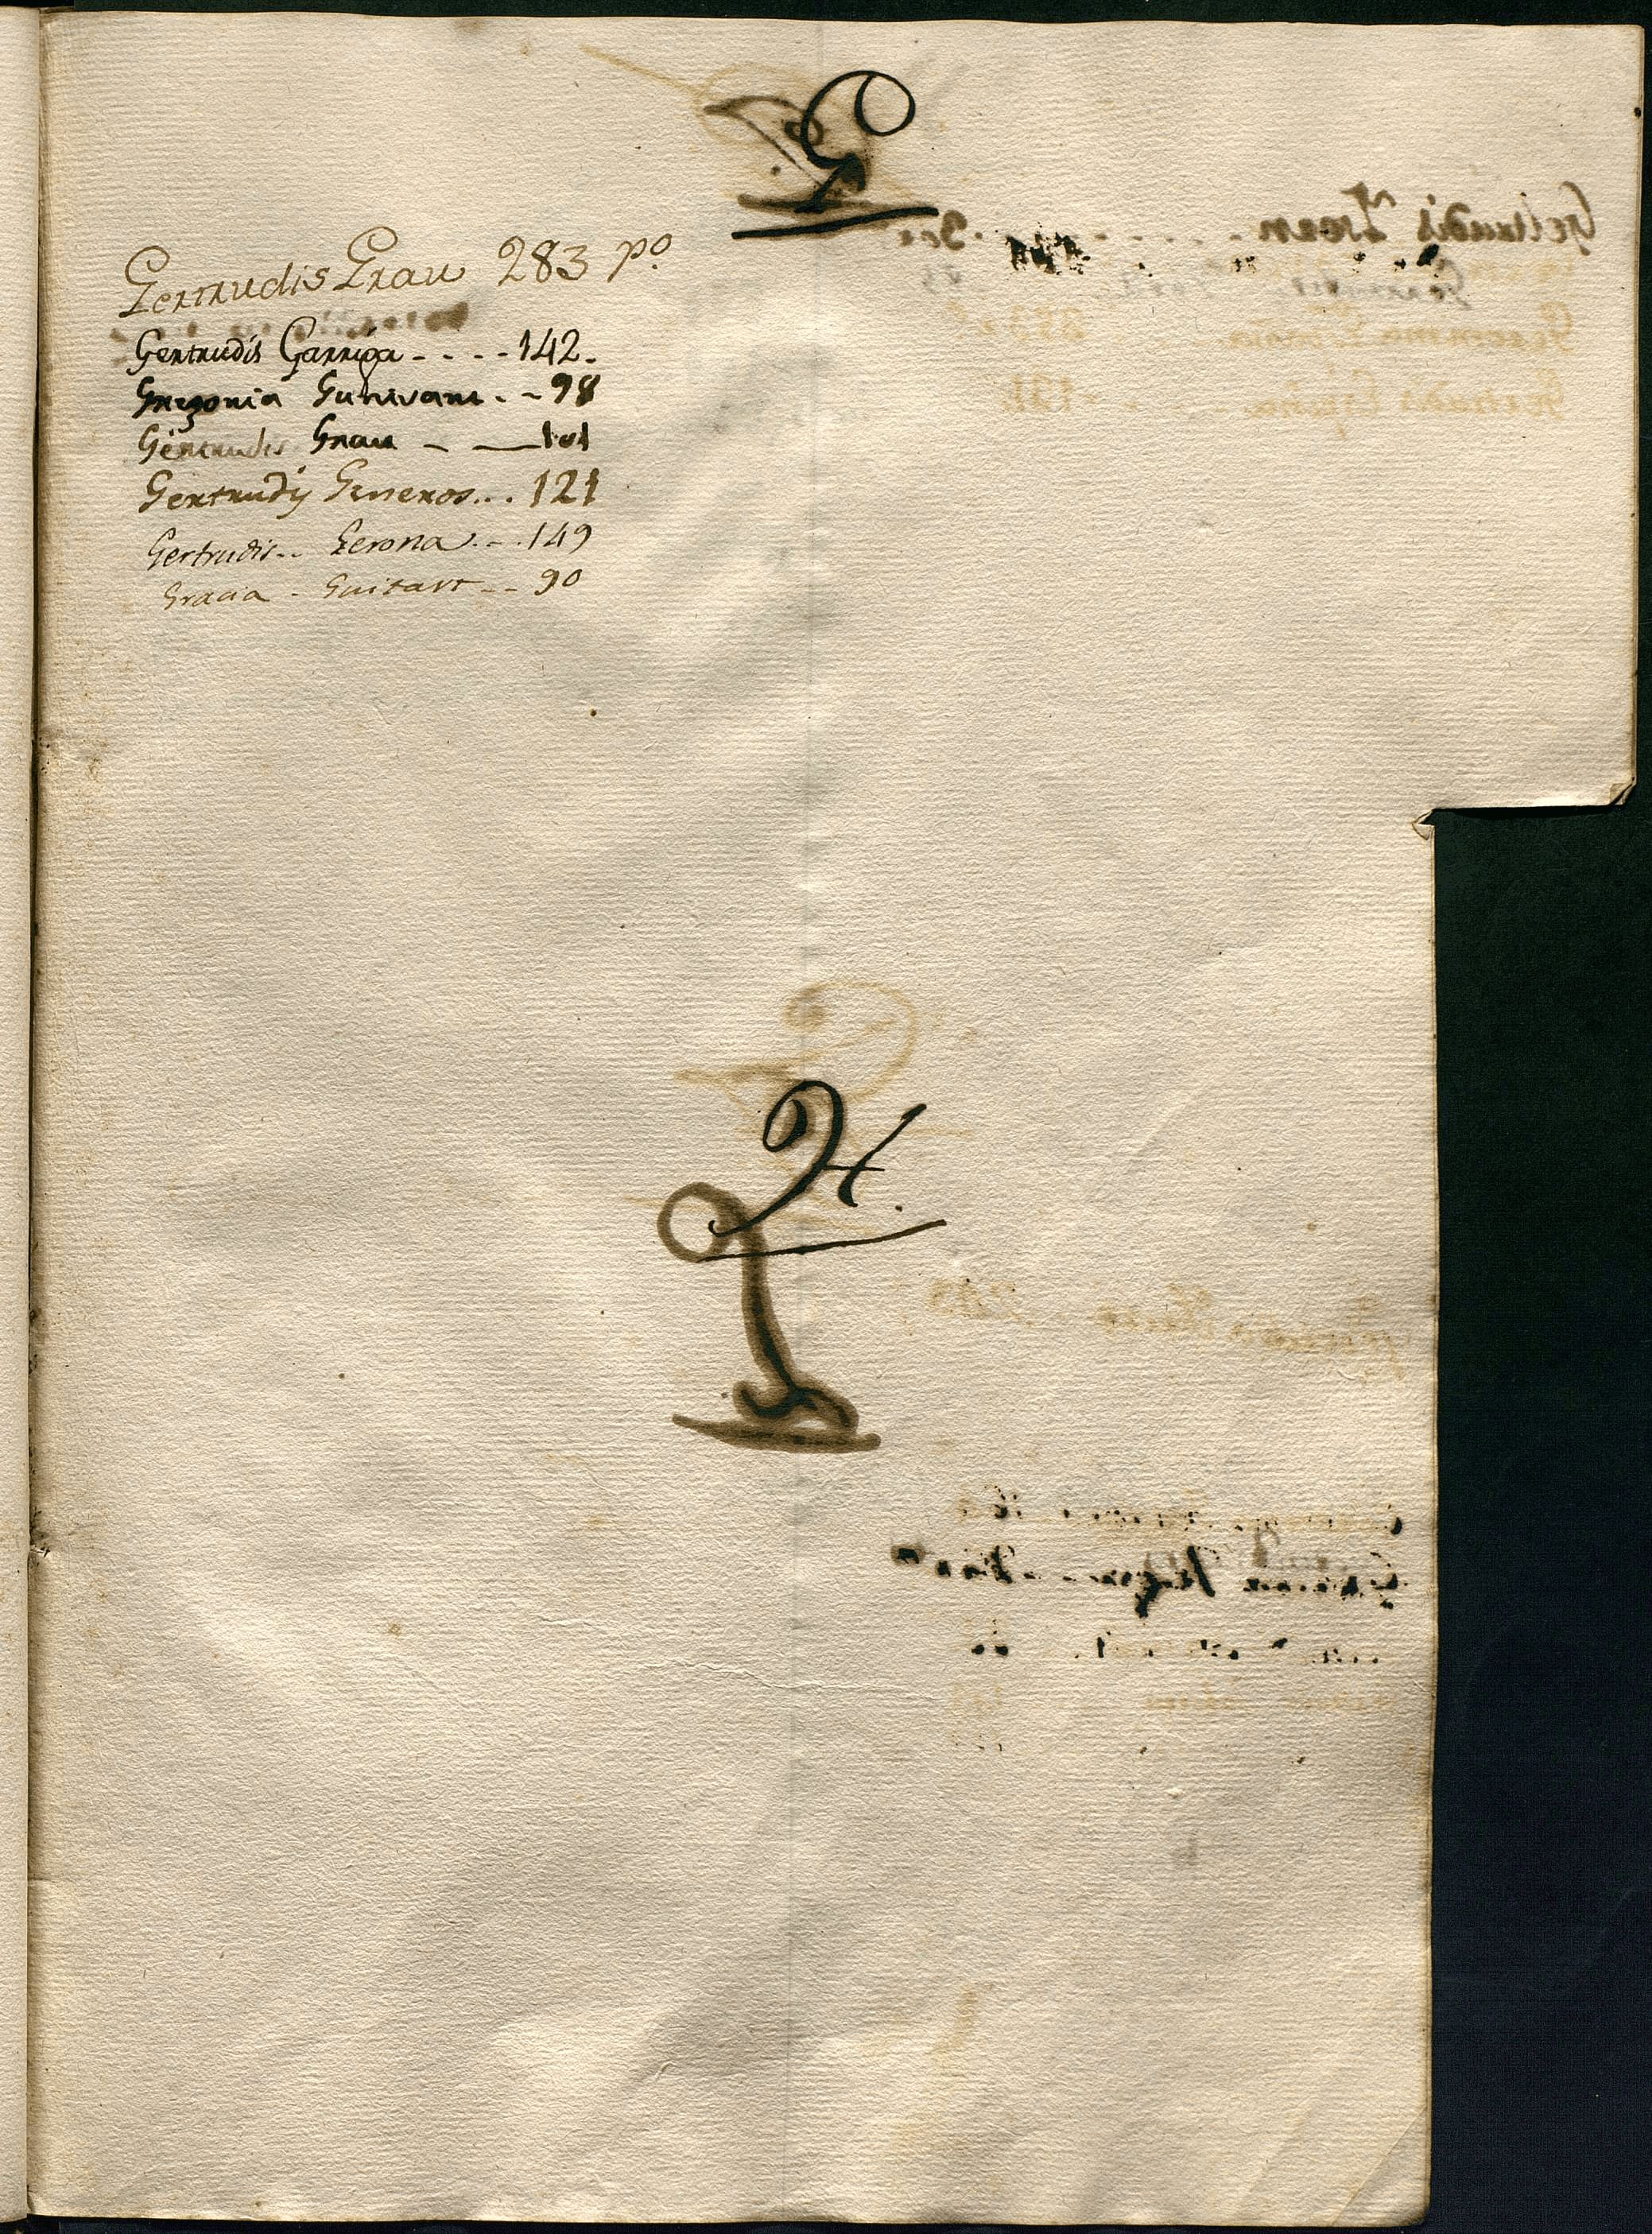 G
Gertrudis Grau 283 po
Gertrudis Garriga - - - - 142.
Gregonia Gunivart. - - 98
Gertrudis Grau - — 101
Gertrudis Generos... 121
Gertrudis.. Gerona. - . 149
Gracia - Guitart - - 90
H.